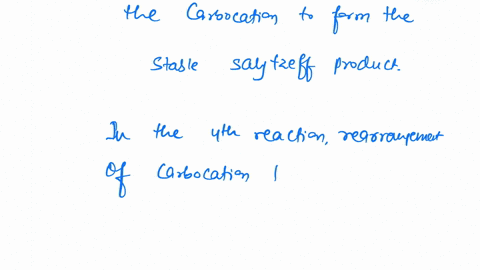 the Carbocation to form the
stable saytzeff product.
In the 4th reaction, rearrangement
Of Carbocation